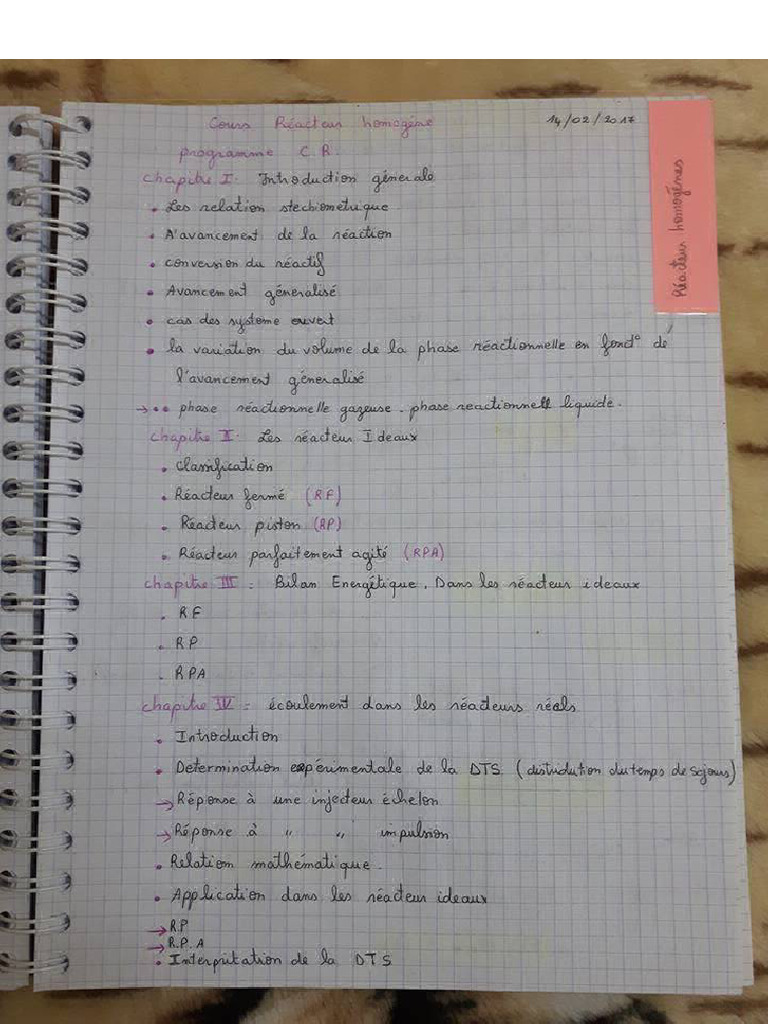 Cours Réacteur homogéne 14/02/2017
programme C.R.
Réacteur homogénes
chapitre I: Introduction génerale
• Les relation stechiométrique
• A'avancement de la réaction
• conversion du réactif
• Avancement géneralisé
• cas des systeme ouvert
• la variation du volume de la phase réactionnelle en fond° de
l'avancement géneralisé
→ •• phase réactionnelle gazeuse. phase reactionnelle liquide.
chapitre II: Les réacteur Ideaux
• classification
• Réacteur fermé (RF)
• Réacteur piston (RP)
• Réacteur parfaitement agité (RPA)
chapitre III: Bilan Energétique. Dans les réacteur ideaux
• RF
• RP
• RPA
chapitre IV: écoulement dans les réacteurs réels
• Introduction
• Determination expérimentale de la DTS (distridution du temps de sejours)
→ Réponse à une injecteur échelon
→ Réponse à " " impulsion
• Relation mathématique.
• Application dans les réacteur ideaux
→ R.P
→ R.P.A
• Interpretation de la DTS